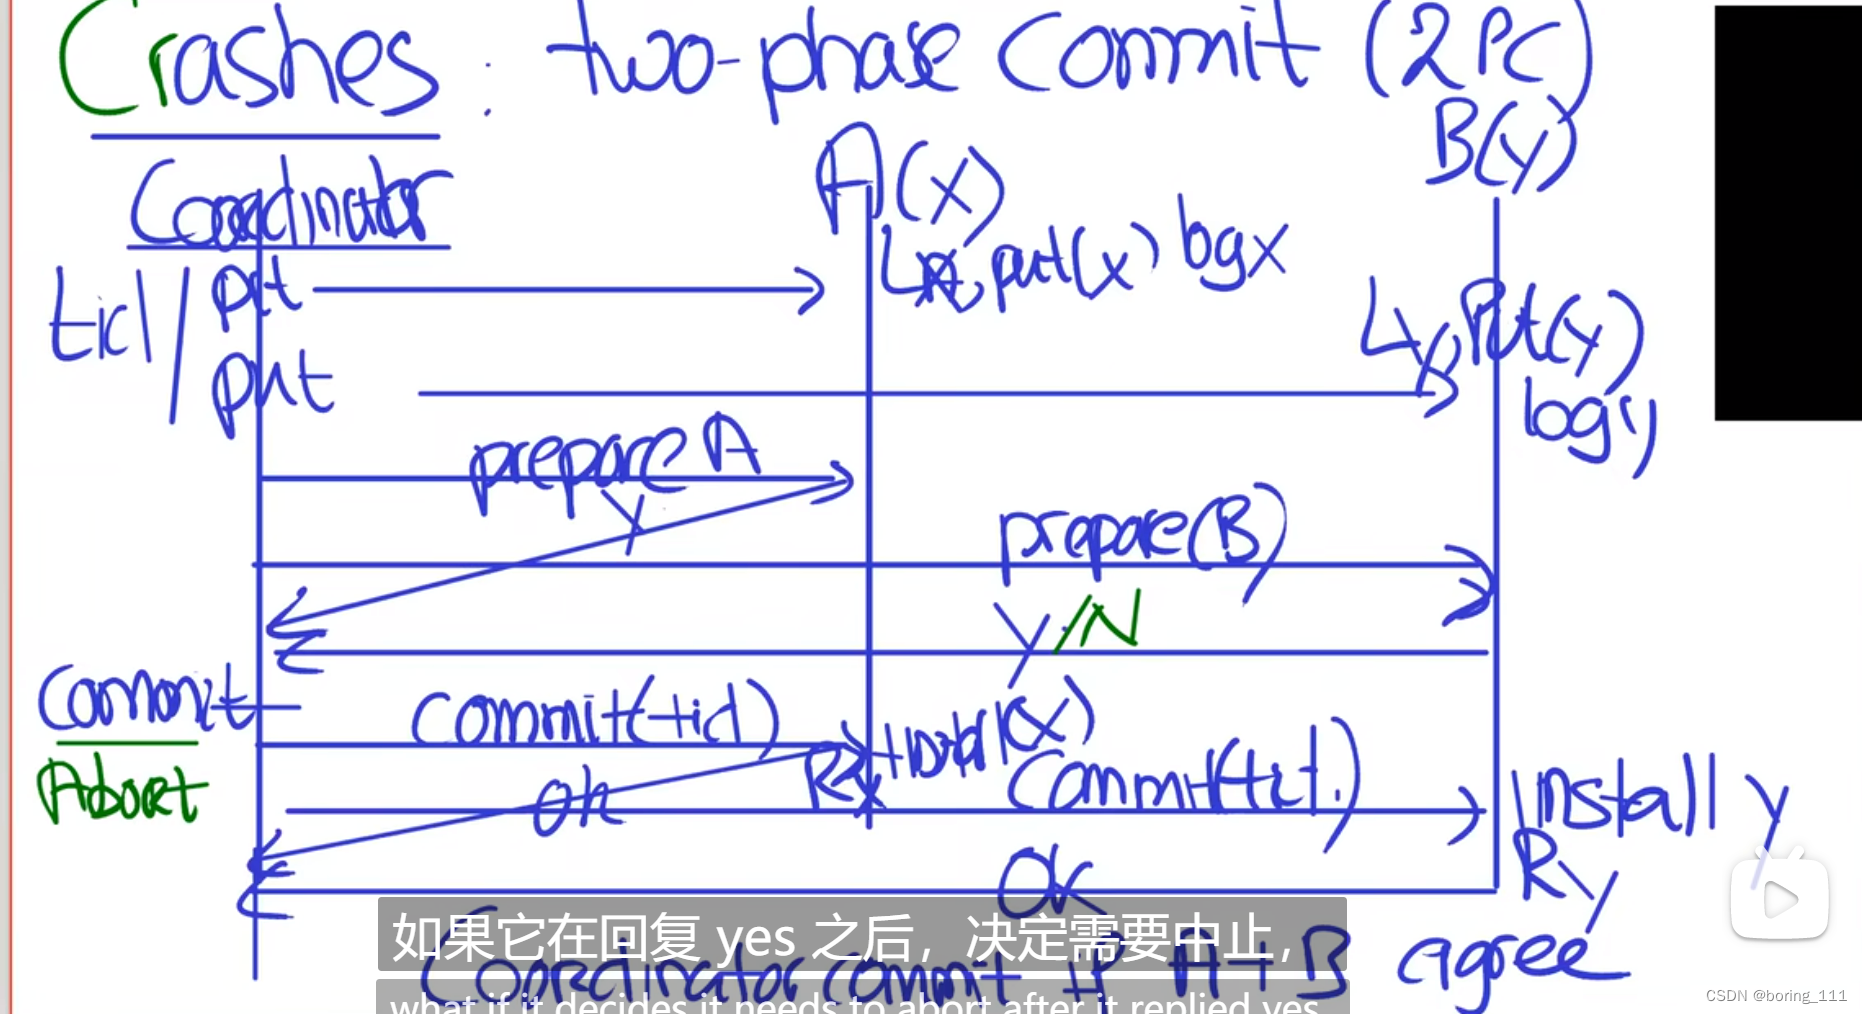 Crashes : two-phase Commit (2PC)
Coordinator
A(x)
B(y)
tid / put
Lx, put(x) log x
put
Ly, Put(y)
log y
prepare A
Y
prepare(B)
Y/N
Commit
Commit(tid)
Rx
Install(x)
Abort
Ok
Commit(tid)
Install y
Ry
Ok
如果它在回复 yes 之后，决定需要中止，
Coordinator commit if A+B agree
what if it decides it needs to abort after it replied yes
CSDN @boring_111